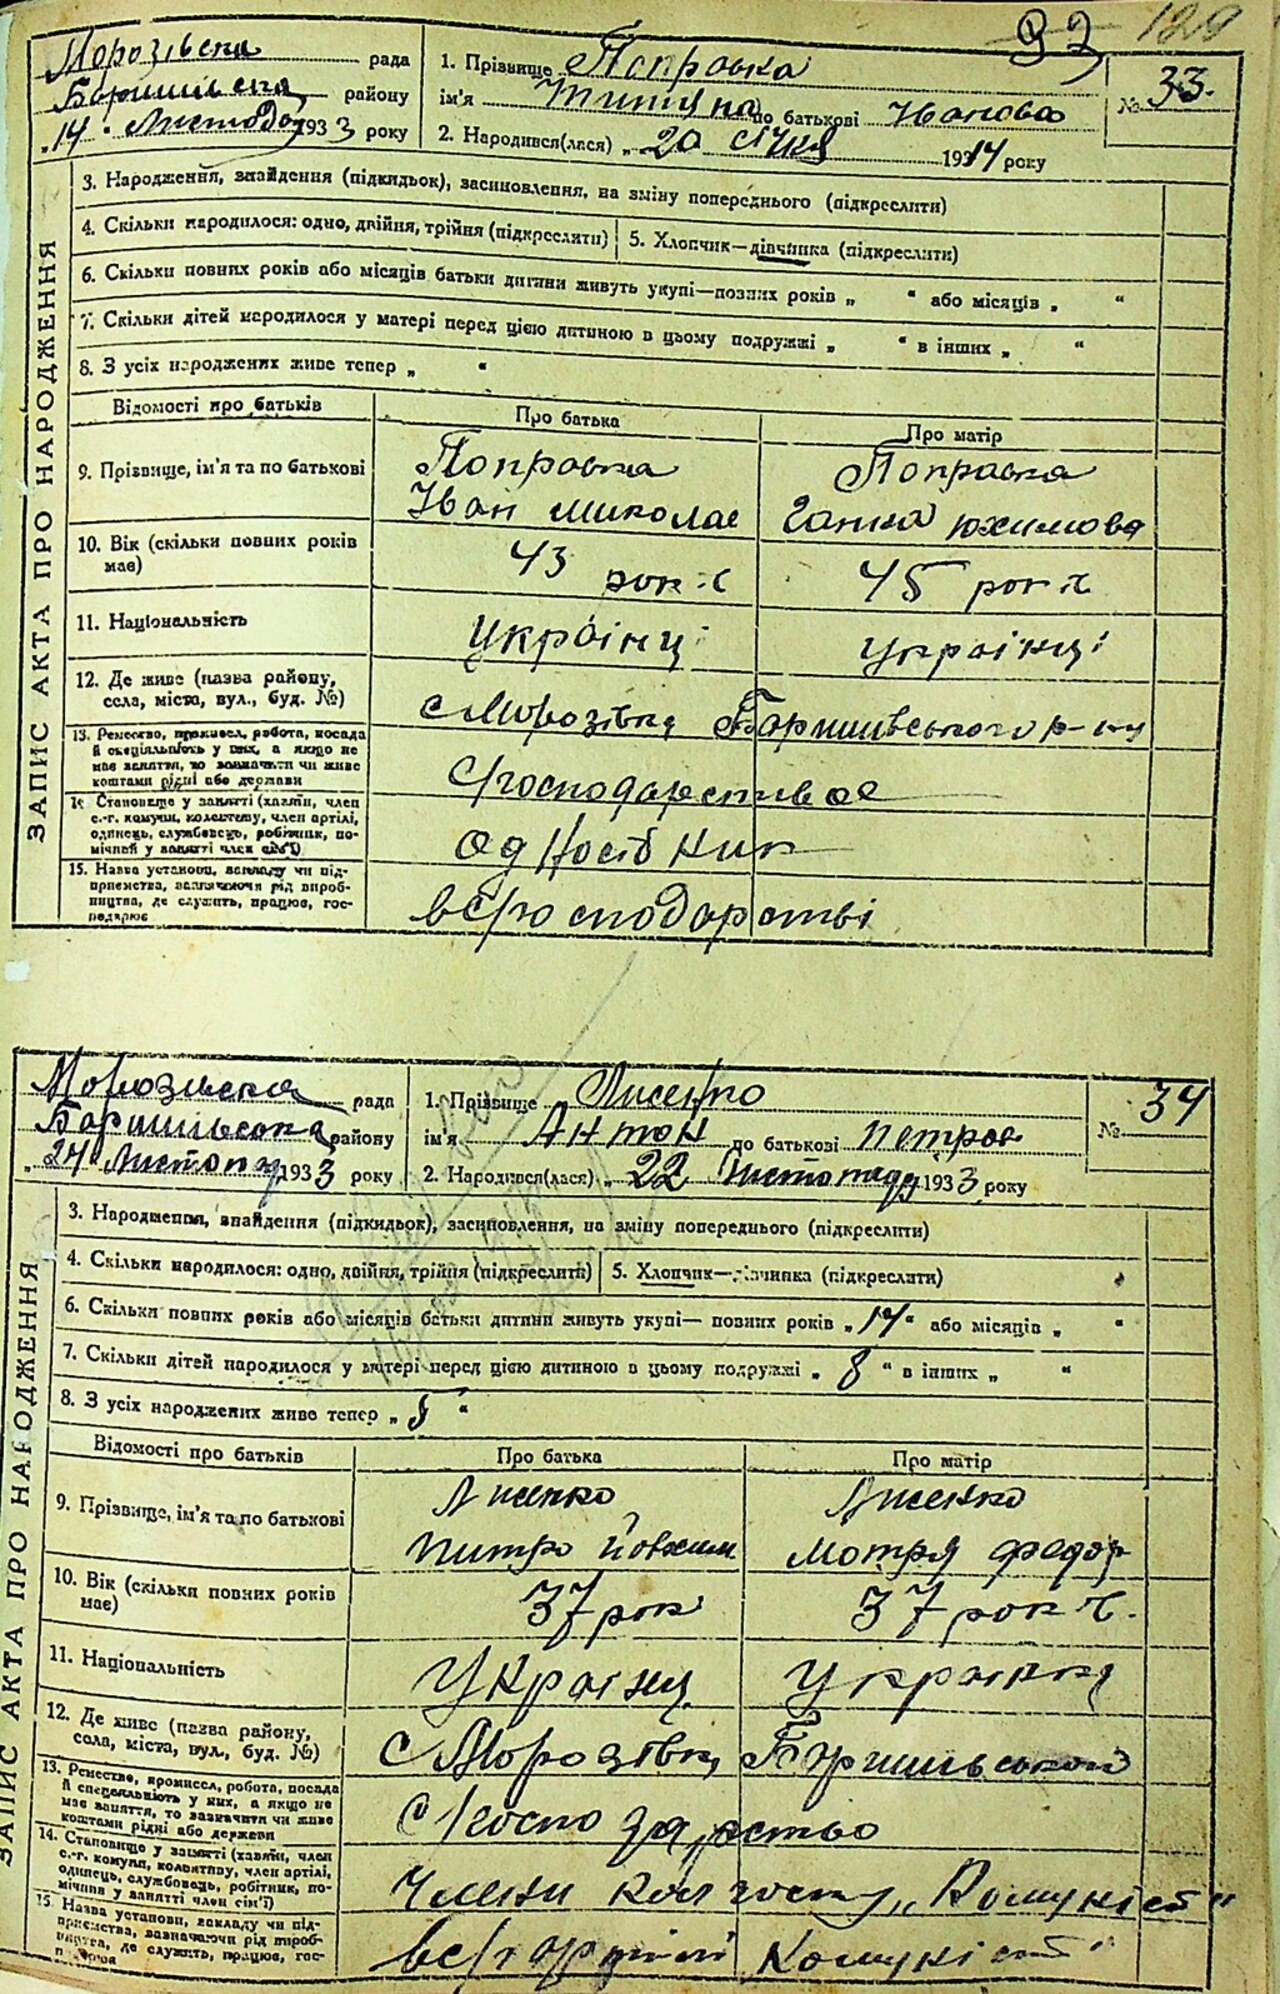 92 129
Морозівська рада
Баришівська району
„14“ Листопад 1933 року
1. Прізвище Поправка
ім'я Титяна по батькові Іванова
2. Народився(лася) „20 січня 1914 року
№ 33.
ЗАПИС АКТА ПРО НАРОДЖЕННЯ
3. Народження, знайдення (підкидьок), засиновлення, на зміну попереднього (підкреслити)
4. Скільки народилося: одно, двійня, трійня (підкреслити)
5. Хлопчик—дівчинка (підкреслити)
6. Скільки повних років або місяців батьки дитини живуть укупі—повних років „ “ або місяців „ “
7. Скільки дітей народилося у матері перед цією дитиною в цьому подружжі „ “ в інших „ “
8. З усіх народжених живе тепер „ “
Відомості про батьків
Про батька
Про матір
9. Прізвище, ім'я та по батькові
Поправка
Іван Миколае
Поправка
Ганна Юхимова
10. Вік (скільки повних років має)
43 рок.
45 рок.
11. Національність
Українці
Українці
12. Де живе (назва району, села, міста, вул., буд. №)
с Морозівка Баришівського р-ну
13. Ремество, промисел, робота, посада
й спеціяльність у них, а якщо не
має заняття, то зазначити чи живе
коштами рідні або держави
14. Становище у занятті (хазяїн, член
с.-г. комуни, колективу, член артілі,
одинець, службовець, робітник, по-
мічний у занятті член сім'ї)
одноосібник
15. Назва установи, закладу чи під-
приємства, зазначаючи рід вироб-
ництва, де служить, працює, гос-
подарює
в с/господарстві
Морозівська рада
Баришівська району
„24“ Листопад 1933 року
1. Прізвище Лисенко
ім'я Антон по батькові Петров
2. Народився(лася) „22 Листопаду 1933 року
№ 34
ЗАПИС АКТА ПРО НАРОДЖЕННЯ
3. Народження, знайдення (підкидьок), засиновлення, на зміну попереднього (підкреслити)
4. Скільки народилося: одно, двійня, трійня (підкреслити)
5. Хлопчик—дівчинка (підкреслити)
6. Скільки повних років або місяців батьки дитини живуть укупі— повних років „14“ або місяців „ “
7. Скільки дітей народилося у матері перед цією дитиною в цьому подружжі „ 8 “ в інших „ “
8. З усіх народжених живе тепер „ 5 “
Відомості про батьків
Про батька
Про матір
9. Прізвище, ім'я та по батькові
Лисенко
Питро Йовхим
Лисенко
Мотря Федор
10. Вік (скільки повних років має)
37 рок
37 рок.
11. Національність
Українц
Українка
12. Де живе (назва району, села, міста, вул., буд. №)
с Морозівка Баришівськог
13. Ремество, промисел, робота, посада
й спеціяльність у них, а якщо не
має заняття, то зазначити чи живе
коштами рідні або держави
с/госпо дарство
14. Становище у занятті (хазяїн, член
с.-г. комуни, колективу, член артілі,
одинець, службовець, робітник, по-
мічний у занятті член сім'ї)
Члени колгоспу „Комуніст“
15. Назва установи, закладу чи під-
приємства, зазначаючи рід вироб-
ництва, де служить, працює, гос-
подарює
в с/г артілі Комуніст